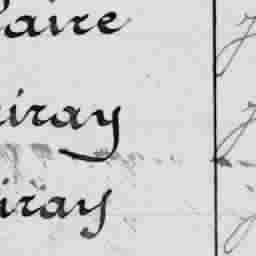 aire
iray
iray